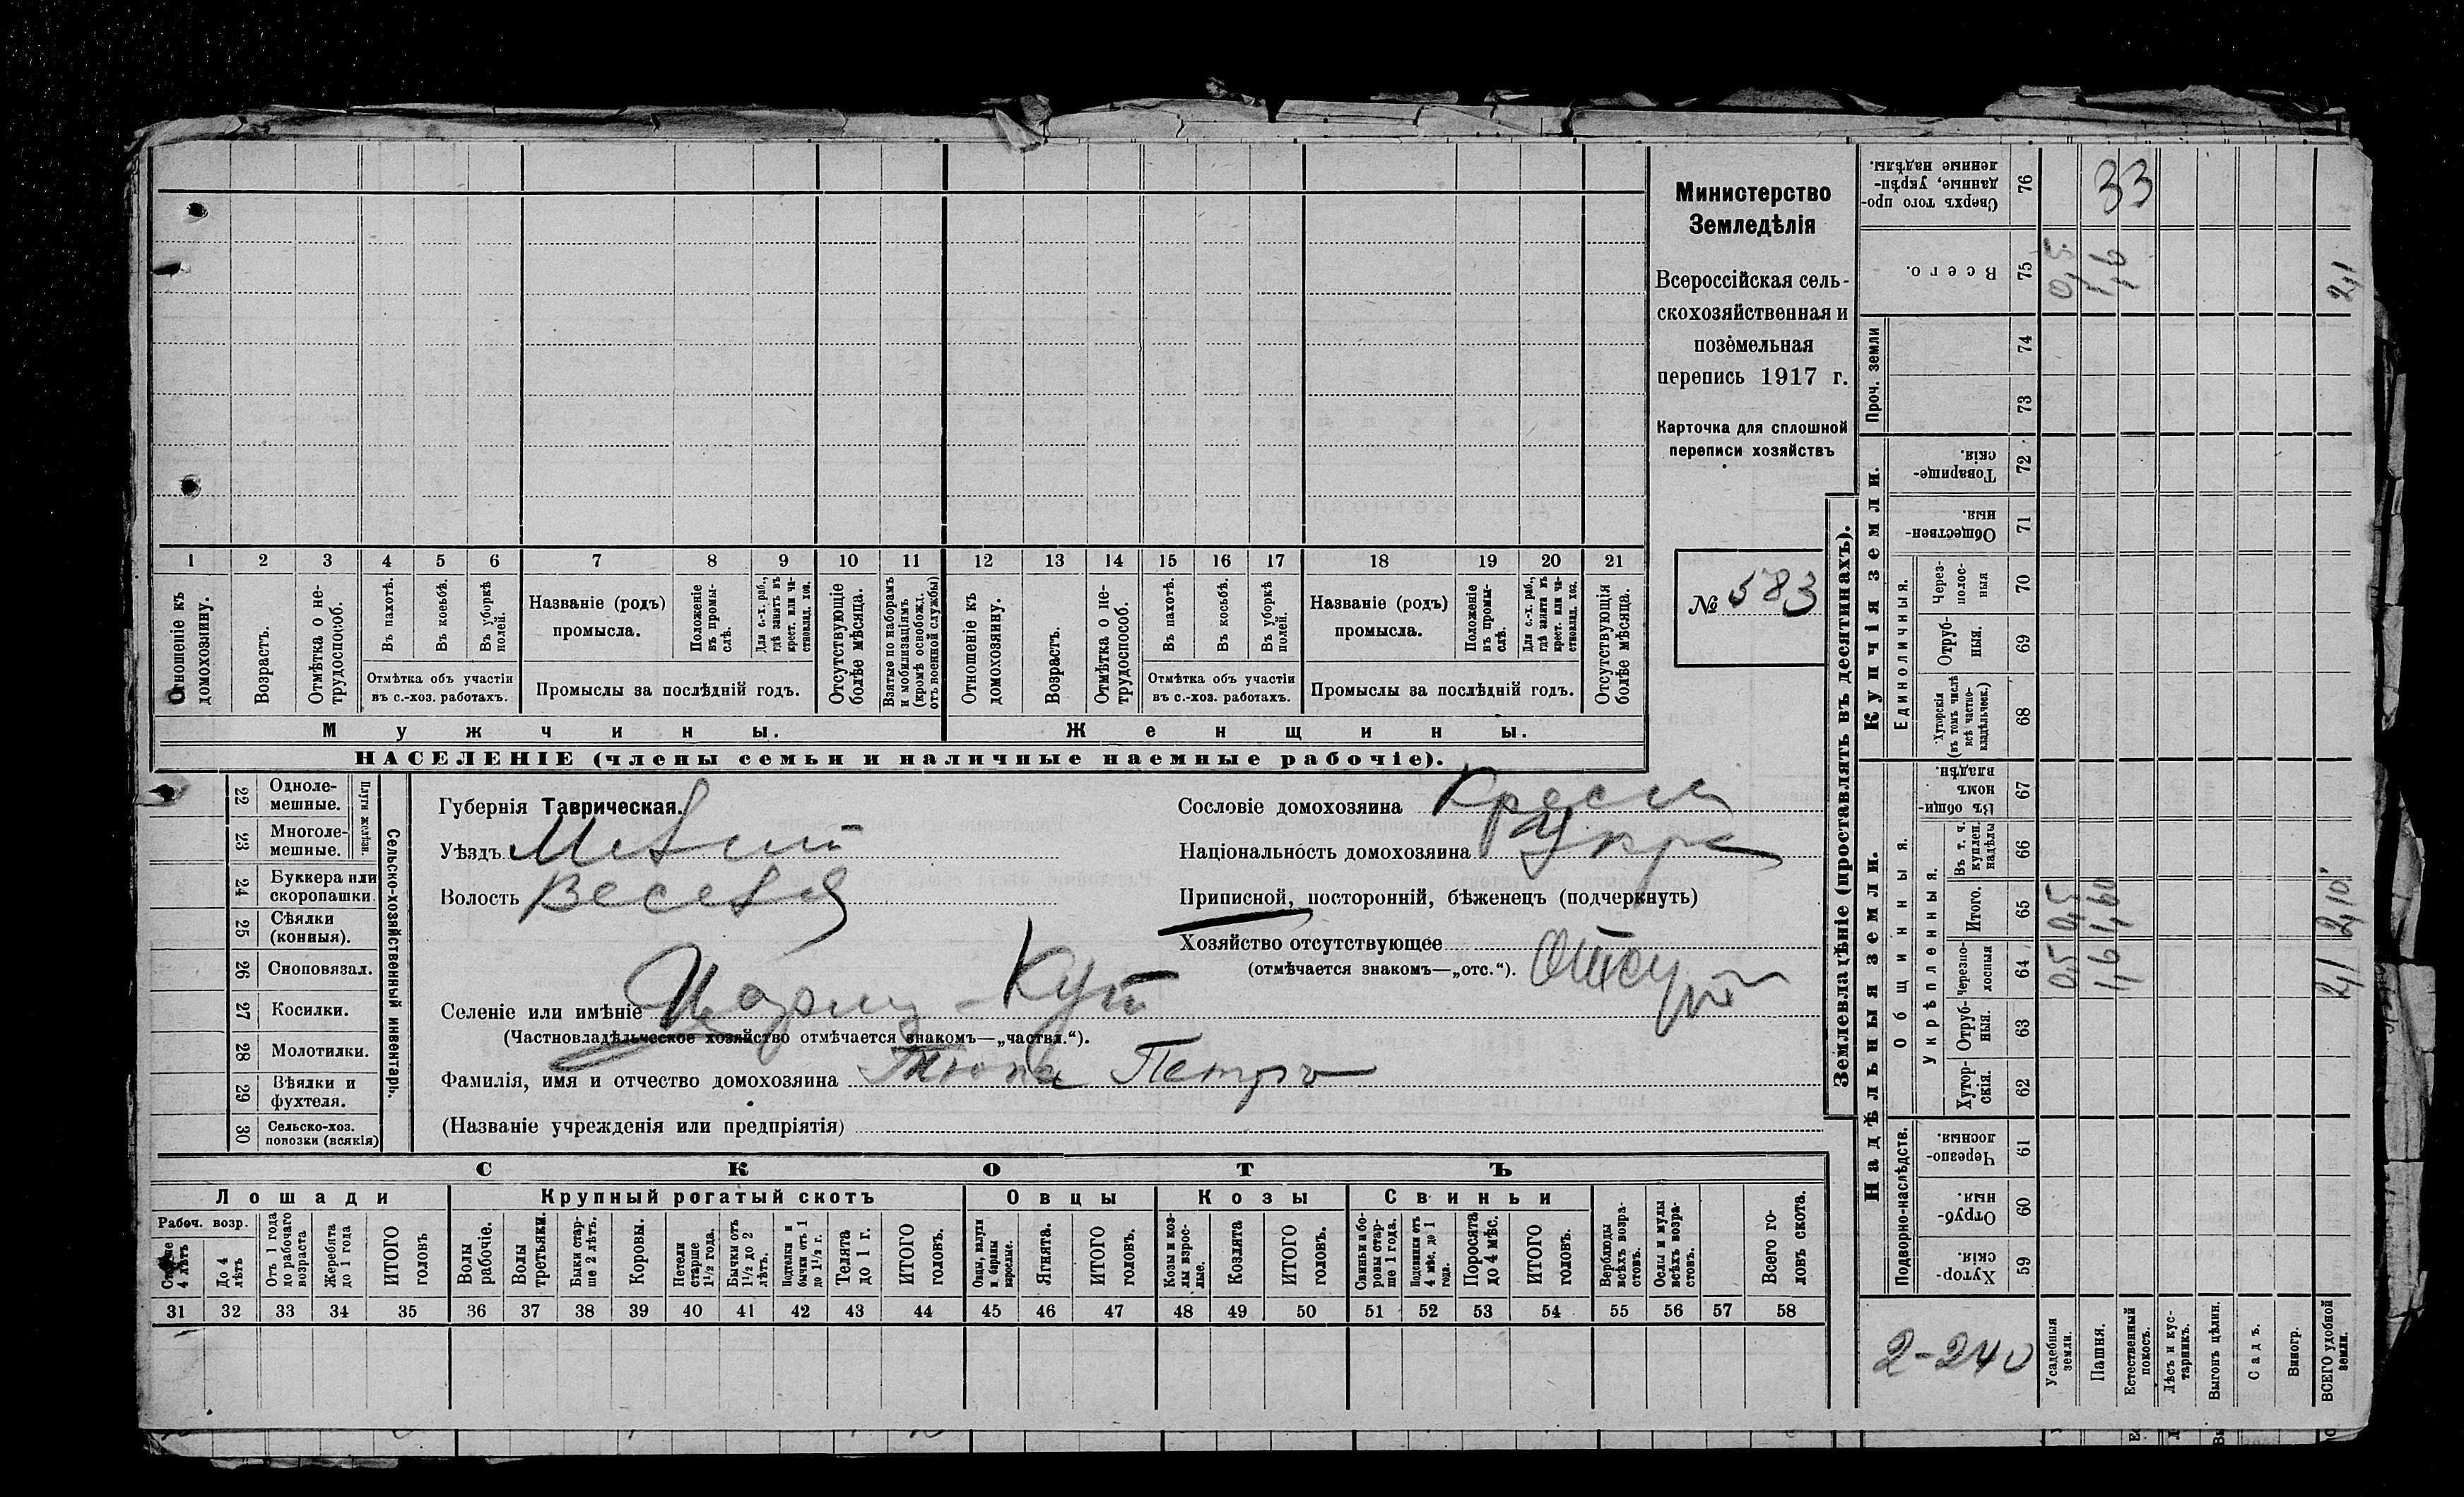 Министерство
Земледѣлія
Всероссійская сель-
скохозяйственная и
поземельная
перепись 1917 г.
Карточка для сплошной
переписи хозяйствъ
№ 583
1 2 3 4 5 6 7 8 9 10 11 12 13 14 15 16 17 18 19 20 21
Отношеніе къ домохозяину.
Возрастъ.
Отмѣтка о не-трудоспособ.
Въ пахотѣ.
Въ косьбѣ.
Въ уборкѣ полей.
Отмѣтка объ участіи
въ с.-хоз. работахъ.
Названіе (родъ)
промысла.
Положеніе въ промы-слѣ.
Для с.-х. раб., гдѣ занятъ въ крест. или ча-стновлад. хоз.
Промыслы за послѣдній годъ.
Отсутствующіе болѣе мѣсяца.
Взятые по наборамъ и мобилизаціямъ (кромѣ освобожд. отъ военной службы)
Отношеніе къ домохозяину.
Возрастъ.
Отмѣтка о не-трудоспособ.
Въ пахотѣ.
Въ косьбѣ.
Въ уборкѣ полей.
Отмѣтка объ участіи
въ с.-хоз. работахъ.
Названіе (родъ)
промысла.
Положеніе въ промы-слѣ.
Для с.-х. раб., гдѣ заняти въ крест. или ча-стновлад. хоз.
Промыслы за послѣдній годъ.
Отсутствующія болѣе мѣсяца.
Мужчины.
Женщины.
НАСЕЛЕНІЕ (члены семьи и наличные наемные рабочіе).
22 Одноле-мешные.
23 Многоле-мешные.
Плуги желѣзн.
24 Буккера или скоропашки.
25 Сѣялки (конныя).
26 Сноповязал.
27 Косилки.
28 Молотилки.
29 Вѣялки и фухтеля.
30 Сельско-хоз. повозки (всякія)
Сельско-хозяйственный инвентарь.
Губернія Таврическая.
Уѣздъ
Волость Весел
Селеніе или имѣніе
(Частновладѣльческое хозяйство отмѣчается знакомъ—„частвл.“).
Фамилія, имя и отчество домохозяина Тюпа Петръ
(Названіе учрежденія или предпріятія)
Сословіе домохозяина
Національность домохозяина Укра
Приписной, посторонній, бѣженецъ (подчеркнуть)
Хозяйство отсутствующее
(отмѣчается знакомъ—„отс.“).
СКОТЪ
Лошади
Крупный рогатый скотъ
Овцы
Козы
Свиньи
Рабоч. возр.
Старше 4 лѣтъ
До 4 лѣтъ
Отъ 1 года до рабочаго возраста
Жеребята до 1 года
ИТОГО головъ
Волы рабочіе.
Волы третьяки.
Быки стар-ше 2 лѣтъ.
Коровы.
Петели старше 1½ года.
Бычки отъ 1½ до 2 лѣтъ.
Подтелки и бычки отъ 1 до 1½ г.
Телята до 1 г.
ИТОГО головъ.
Овцы, валухи и бараны взрослые.
Ягнята.
ИТОГО головъ.
Козы и коз-лы взрос-лые.
Козлята
ИТОГО головъ.
Свиньи и бо-ровы стар-ше 1 года.
Подсвинки отъ 4 мѣс. до 1 года.
Поросята до 4 мѣс.
ИТОГО головъ.
Верблюды всѣхъ возра-стовъ.
Ослы и мулы всѣхъ возра-стовъ.
Всего го-ловъ скота.
31 32 33 34 35 36 37 38 39 40 41 42 43 44 45 46 47 48 49 50 51 52 53 54 55 56 57 58
Землевладѣніе (проставлять въ десятинахъ).
Сверхъ того про-данные, укрѣп-ленные надѣлы. 76 33
Всего. 75 0,5 1,6 2,1
Проч. земли
74
73
Купчія земли.
Товарище-скія. 72
Обществен-ныя. 71
Единоличныя.
Через-полос-ныя 70
Отруб-ныя. 69
Хуторскія (въ томъ числѣ всѣ частно-владѣльческ.) 68
Надѣльныя земли.
Общинныя.
Въ общин-номъ владѣн. 67
Укрѣпленныя.
Въ т. ч. куплен. надѣлы 66
Итого. 65 0,5 1,60 2,10
Черезпо-лосныя 64 0,5 1,6 2,1
Отруб-ныя. 63
Хутор-скія. 62
Подворно-наслѣдств.
Черезпо-лосныя. 61
Отруб-ныя. 60
Хутор-скія. 59
2-240
Усадебныя земли.
Пашня.
Естественный покосъ.
Лѣсъ и кус-тарникъ.
Выгонъ цѣлин.
Садъ.
Виногр.
ВСЕГО удобной земли.